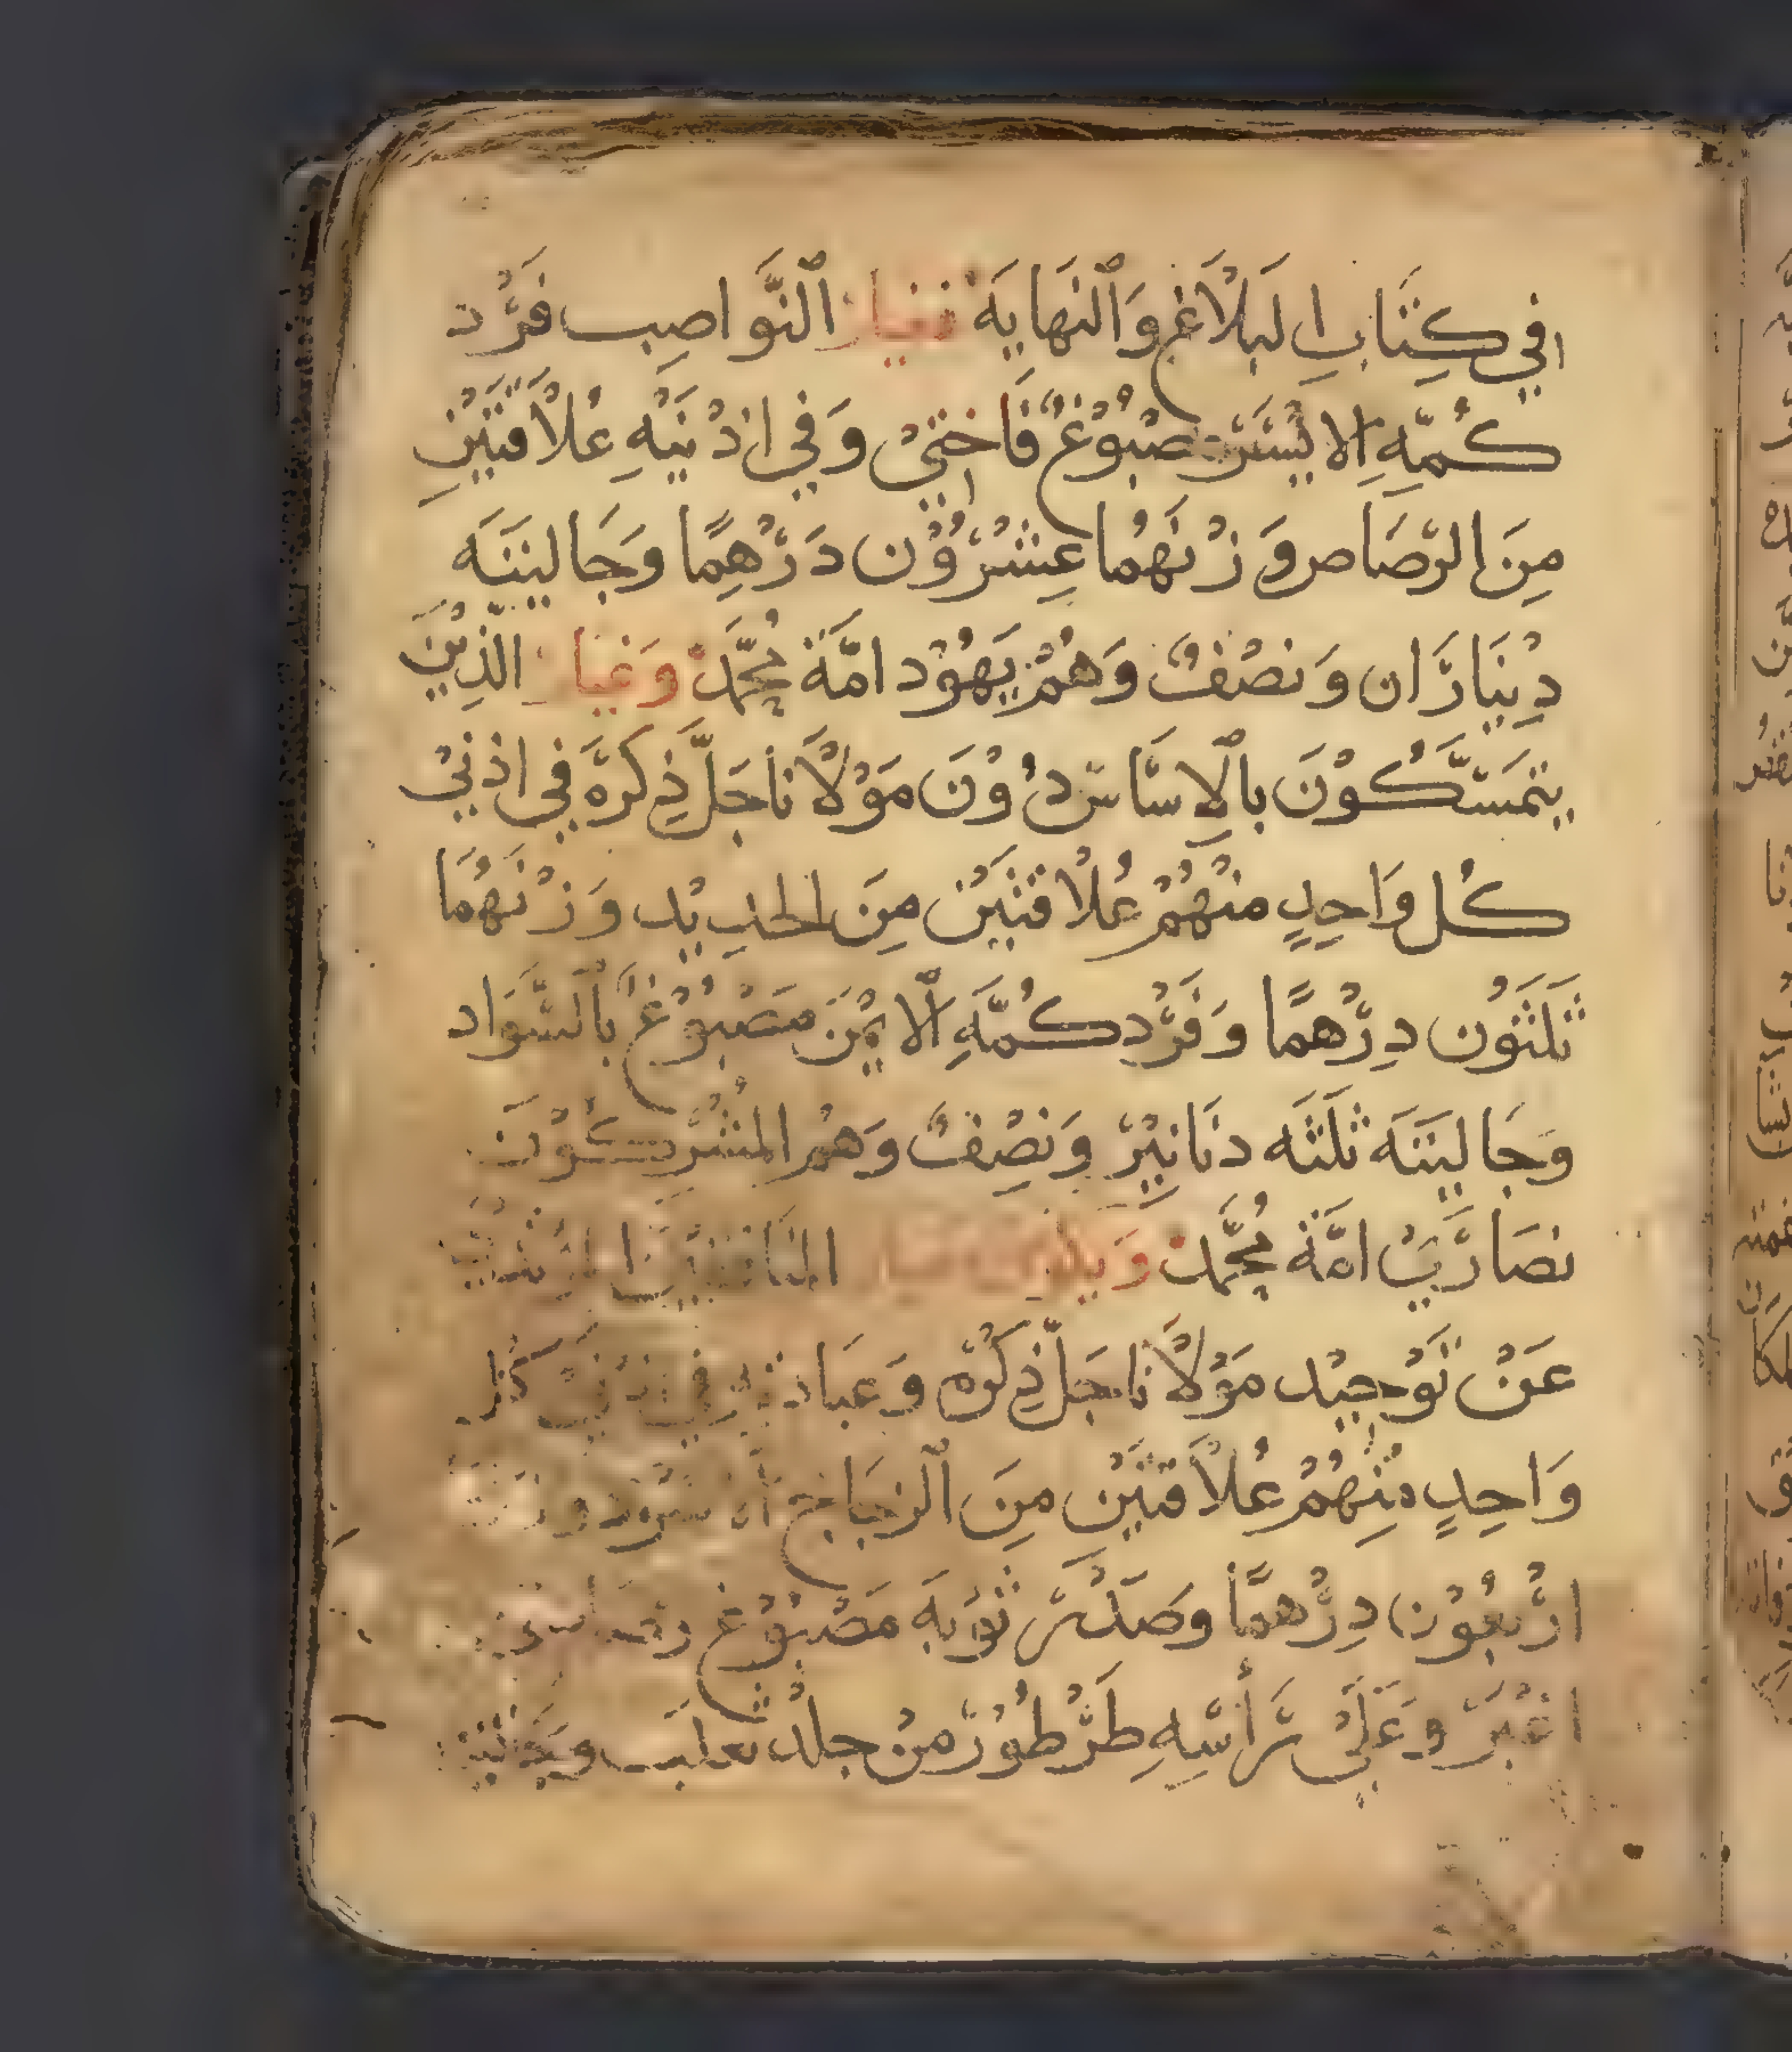 في كِتَابِ البَلَاغ وَٱلنهَايَة فغيار ٱلنَّواصِب فَرْد
كُمّهِ الايْسَر صْبُوْغٌ فَاخِتيْ وَفي اذْنَيْهِ عُلَاقَتَيْنِ
مِنَ الرّصَاص وَزْنهُمَا عِشْرُوْن دَرْهِمًا وَجَاليَتَه
دِيْنَارَان وَنصْفٌ وَهُمْ يَهُوْد امَّة مُحَّمَدْ وَغيار الَّذِيْنَ
يتمَسَّكُوْنَ بالِاسَاسْ دُوْنَ مَوْلَانَا جَلَّ ذِكرَهُ في اذنيْ
كُل وَاحِدٍ منْهُمْ عُلَاقتَيْن مِنَ الحَدِيْد وَزْنهُمَا
ثَلَثَوْن دِرْهمًا وَفَرْد كُمَّهِ ٱلايْمَن مَصْبُوْغ بٱلسَّوَاد
وَجَاليَتَه ثَلَثَه دنَانيْرْ وَنصِفٌ وَهُمْ المُشْرِكُوْنَ
نصَارَىْ امَّة مُحَّمَدْ
عَنْ تَوْحِيْد مَوْلَانَا جَلَّ ذِكْرُهُ وَعبَادته في اذنيْ كل
وَاحِدٍ مْنِهُمْ عُلَاقَتَيْنِ مِنَ ٱلزجَاج
ارْبَعُوْن دِرْهمًا وصَدْر ثوْبَهَ مَصْبُوْغ
اغْبَرْ وَعَلَىْ رَأْسِهِ طَرْطُوْرْ منْ جلْد ثعلَب وجَاليَتَه